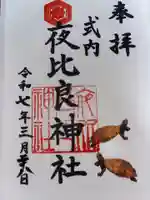 奉拝
式内
夜比良神社
令和七年三月廿八日